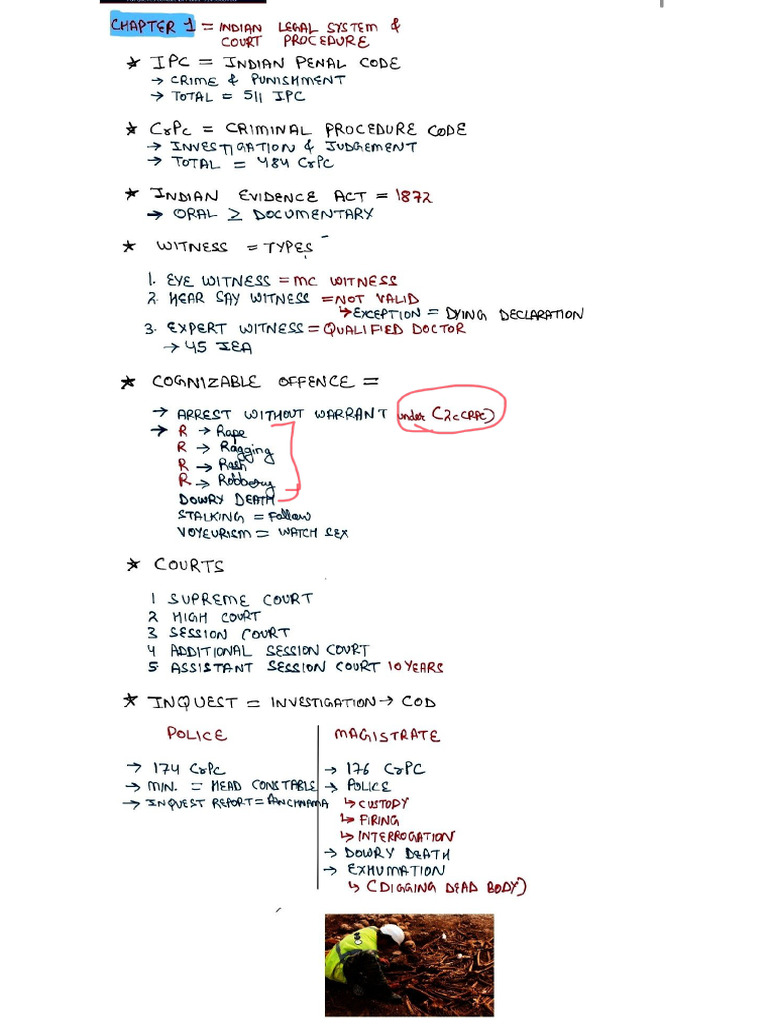 CHAPTER 1 = INDIAN LEGAL SYSTEM &
COURT PROCEDURE
* IPC = INDIAN PENAL CODE
→ CRIME & PUNISHMENT
→ TOTAL = 511 IPC
* CrPc = CRIMINAL PROCEDURE CODE
→ INVESTIGATION & JUDGEMENT
→ TOTAL = 484 CrPC
* INDIAN EVIDENCE ACT = 1872
→ ORAL ≥ DOCUMENTARY
* WITNESS = TYPES -
1. EYE WITNESS = MC WITNESS
2. HEAR SAY WITNESS = NOT VALID
↳ EXCEPTION = DYING DECLARATION
3. EXPERT WITNESS = QUALIFIED DOCTOR
→ 45 IEA
* COGNIZABLE OFFENCE =
→ ARREST WITHOUT WARRANT under (2c CRPC)
→ R → Rape
R → Ragging
R → Rash
R → Robbery
DOWRY DEATH
STALKING = Follow
VOYEURISM = WATCH SEX
* COURTS
1 SUPREME COURT
2 HIGH COURT
3 SESSION COURT
4 ADDITIONAL SESSION COURT
5 ASSISTANT SESSION COURT 10 YEARS
* INQUEST = INVESTIGATION → COD
POLICE
→ 174 CrPC
→ MIN. = HEAD CONSTABLE
→ INQUEST REPORT = PANCHNAMA
MAGISTRATE
→ 176 CrPC
→ POLICE
↳ CUSTODY
↳ FIRING
↳ INTERROGATION
→ DOWRY DEATH
→ EXHUMATION
↳ (DIGGING DEAD BODY)